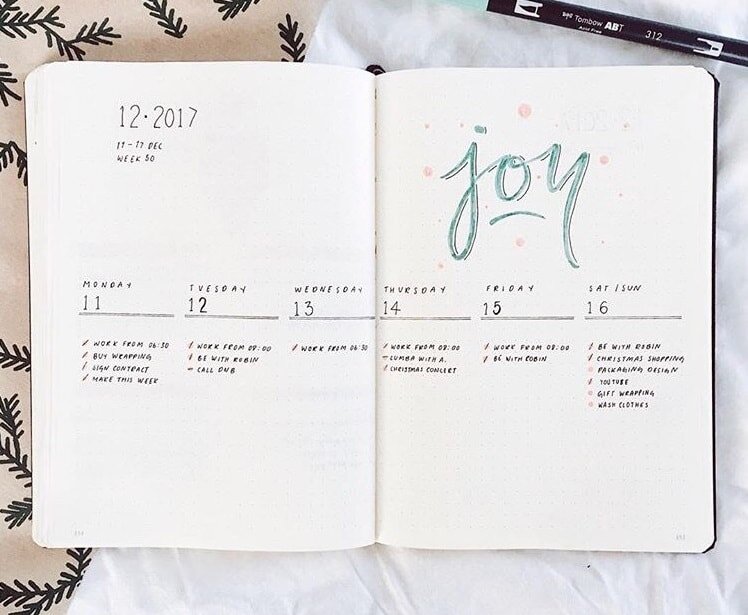 Tombow ABT 312
Acid Free
12·2017
11-17 DEC
WEEK 50
joy
MONDAY
11
WORK FROM 06:30
BUY WRAPPING
SIGN CONTRACT
MAKE THIS WEEK
TUESDAY
12
WORK FROM 08:00
BE WITH ROBIN
CALL DNB
WEDNESDAY
13
WORK FROM 06:30
THURSDAY
14
WORK FROM 08:00
LUMBA WITH A.
CHRISTMAS CONCERT
FRIDAY
15
WORK FROM 08:00
BE WITH ROBIN
SAT/SUN
16
BE WITH ROBIN
CHRISTMAS SHOPPING
PACKAGING DESIGN
YOUTUBE
GIFT WRAPPING
WASH CLOTHES